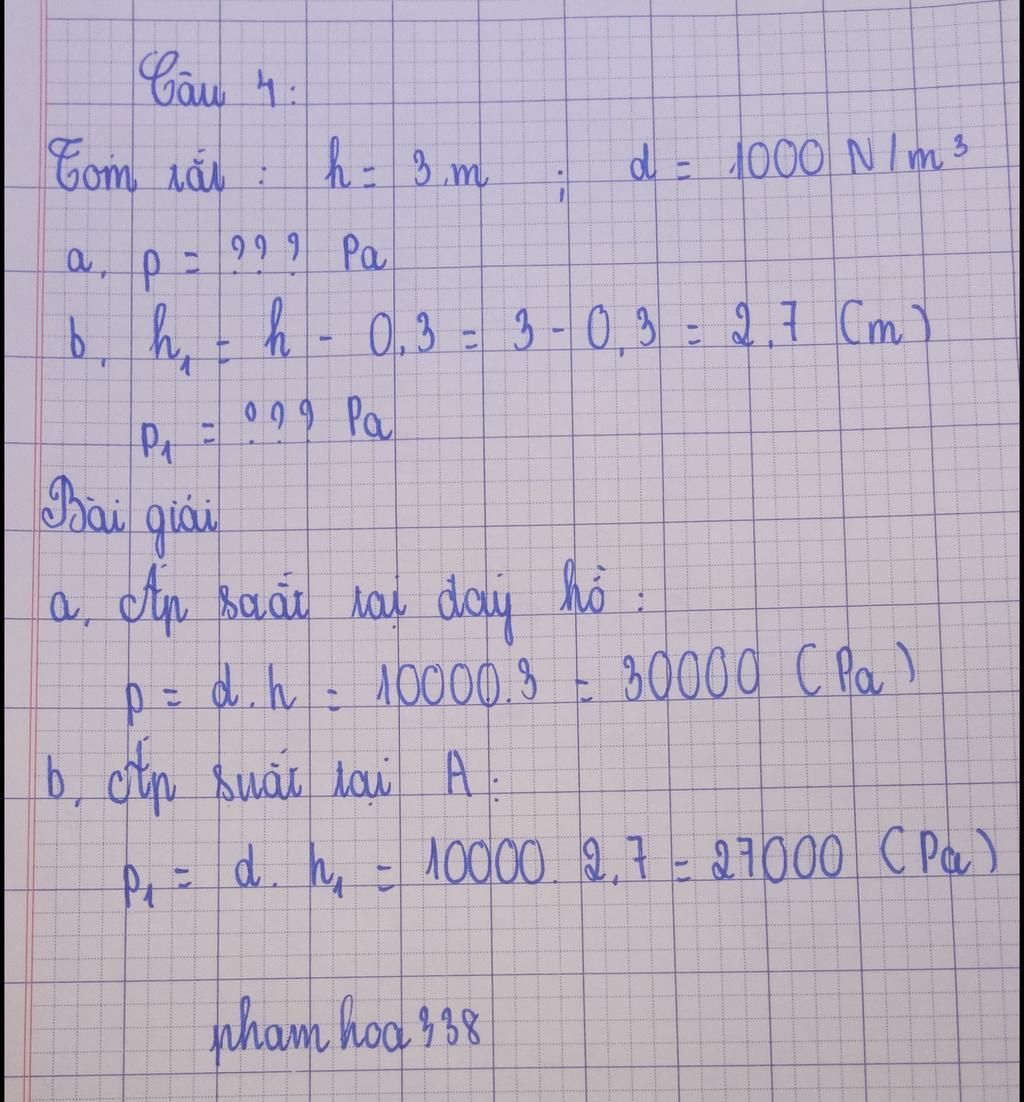 Câu 4:
Tóm tắt : h = 3 m ; d = 1000 N/m³
a. p = ??? Pa
b. h₁ = h - 0,3 = 3 - 0,3 = 2,7 (m)
p₁ = ??? Pa
Bài giải
a. Áp saất tại đáy hồ :
p = d.h = 10000.3 = 30000 (Pa)
b. Áp suất tại A :
p₁ = d. h₁ = 10000. 2,7 = 27000 (Pa)
phamhoa338